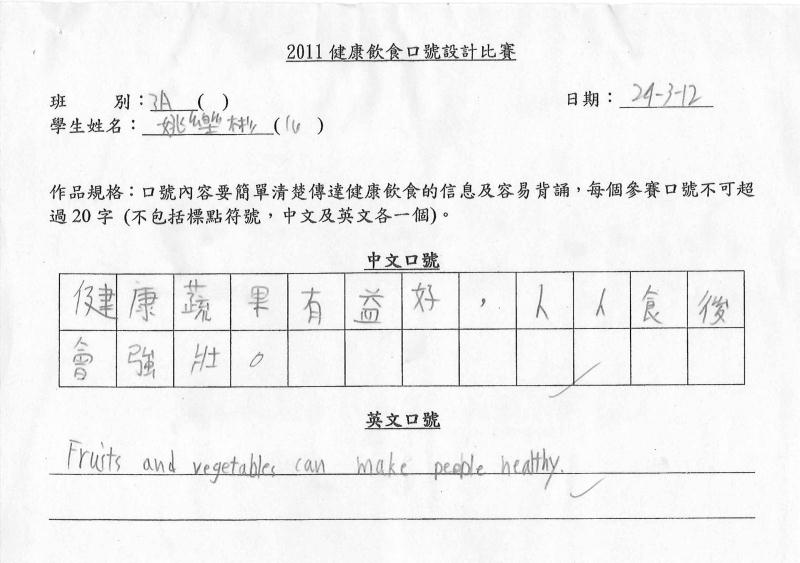 2011 健康飲食口號設計比賽
班 別：3A ( ) 日期：24-3-12
學生姓名：姚樂彬 ( )
作品規格：口號內容要簡單清楚傳達健康飲食的信息及容易背誦，每個參賽口號不可超
過 20 字 (不包括標點符號，中文及英文各一個)。
中文口號
健康蔬果有益好，人人食後
會強壯。
英文口號
Fruits and vegetables can make people healthy.